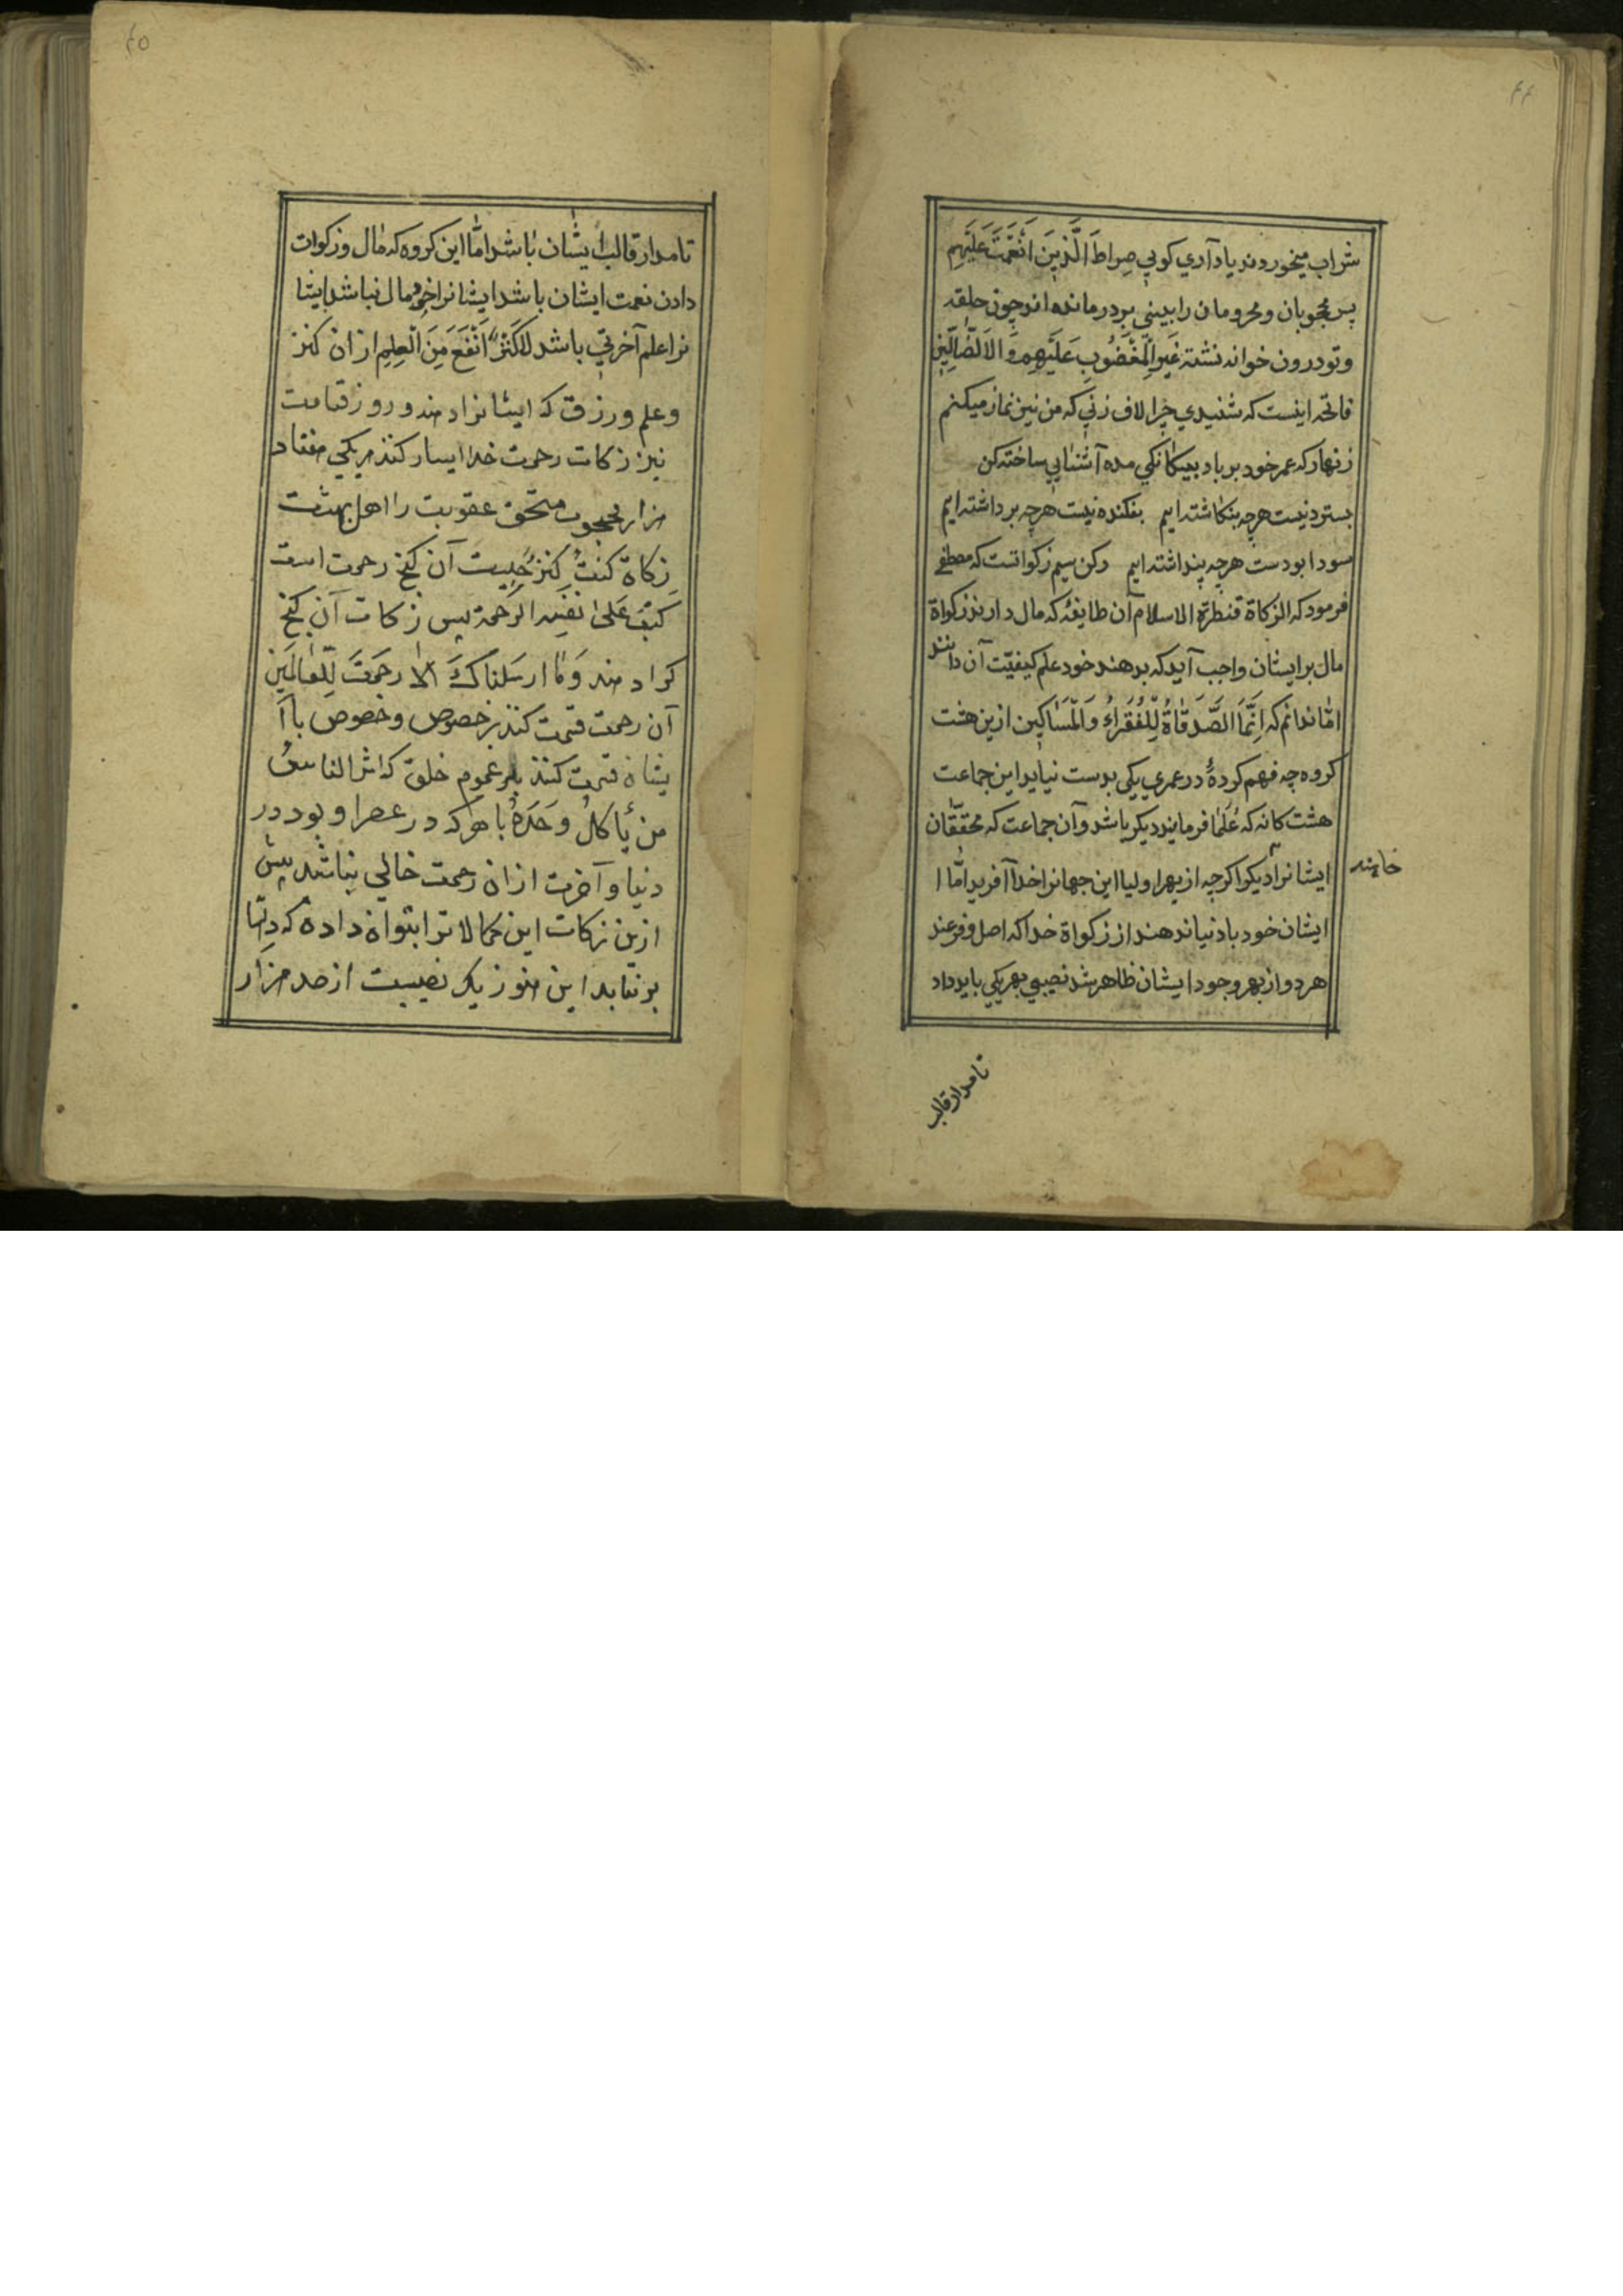 ۴۴
شراب میخوردند یاد آری کویی صِراطَ الَّذینَ اَنْعَمْتَ عَلَیْهِم
پس محجوبان و محرومان را بینی بر در مانده اند چون حلقه
و تو درون خوانه نشته غَیرِ الْمَغْضُوبِ عَلَیْهِم وَ لاَ الضّالِّین
فاتحه اینست که شنیدی چرا لاف زنی که من نیز نماز میکنم
زنهار که عمر خود بر باد بیکانکی مده آشنایی ساخته کن
بستردنیست هرچه بنکاشته ایم بفکنده نیست هرچه برداشته ایم
سودا بودست هرچه پنداشته ایم رکن سیم زکواتست که مصطفی
فرمود که الزکاة قنطرة الاسلام آن طایفه که مال دارند زکواة
مال بر ایشان واجب آید که بدهند خود علم کیفیّت آن دانند
امّا ندانم که اِنَّمَا الصَّدَقاةُ لِلْفُقَراءِ وَ الْمَسَاکِین ازین هشت
کروه چه فهم کردهٔ در عمری یکی بدست نیاید این جماعت
هشت کانه که عُلَمَا فرمایند دیکر باشد و آن جماعت که محقّقان
ایشانرا دیکر اکرچه از بهر اولیا این جهانرا خدا آفرید امّا ا
خایند
ایشان خود با دنیا ندهند از زکواة خدا که اصل و فرعند
هر دو از بهر وجود ایشان ظاهر شد نصیبی بهر یکی باید داد
تا مدار قالب
۴۵
تا مدار قالب ایشان باشد امّا این کروه که مال و زکوات
دادن نعمت ایشان باشد ایشانرا مال نباشد ایشا
نرا علم آخرتی باشد لا کَنْزَ اَنْفَعَ مِنَ الْعِلِم از ان کنز
و علم و رزق که ایشانرا دهند و روز قیامت
نیز زکات رحمت خدا ایسار کنند هر یکی هفتاد
هزار محجوب مستحق عقوبت را اهل بهشت
زکاة کنتُ کنزً چیست آن کنج رحمت است
کتبَ عَلی نفسِه الرَحمة پس زکات آن کنج
کرا دهند وَمَا ارسَلناکَ الاّ رحمَتَ لِلّعالَمین
آن رحمت قسمت کنند بر خصوص و خصوص با ا
یشان قسمت کنند بر عموم خلق که اشر الناسُ
من یأکلُ وَحَدَهُ با هر که در عصر او بود در
دنیا و آخرت از ان رحمت خالی نباشد پیش
ازین زکات این کمالا ترا بتوان داده که دلها
بر نتابد این هنوز یک نصیبست از صد هزار